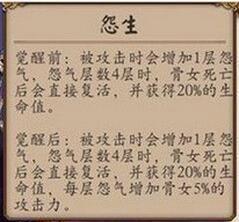 怨生
觉醒前：被攻击时会增加1层怨
气，怨气层数4层时，骨女死亡
后会直接复活，并获得20%的生
命值。
觉醒后：被攻击时会增加1层怨
气，怨气层数4层时，骨女死亡
后会直接复活，并获得20%的生
命值，每层怨气增加骨女5%的
攻击力。